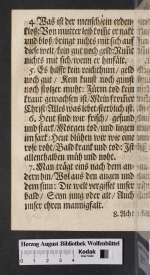 4. Was ist der mensch? ein erden-
kloß: Von mutter leib kombt er nackt
und bloß: bringt nichts mit sich auf
diese welt, kein gut noch geld: Nimt
nichts mit sich, wenn er hinfällt.
5. Es hilfft kein reichthum, geld
noch gut, Kein kunst noch gunst
noch stolzer muth: Fürm tod kein
kraut gewachsen ist, Mein frommer
Christ: Alles was lebet sterblich ist.
6. Heut sind wir frisch, gesund
und starck, Morgen tod, und liegen
im sarck: Heut blühen wir wie
rosen roht, Bald kranck und tod: Ist
allenthalben müh und noht.
7. Man trägt eins nach dem an-
dern hin, Wol aus den augen und
dem sinn: Die welt vergisset unser
bald, Seyn jung oder alt, Auch
unser ehren mannigfalt.
8. Ach
Kodak
Herzog August Bibliothek Wolfenbüttel